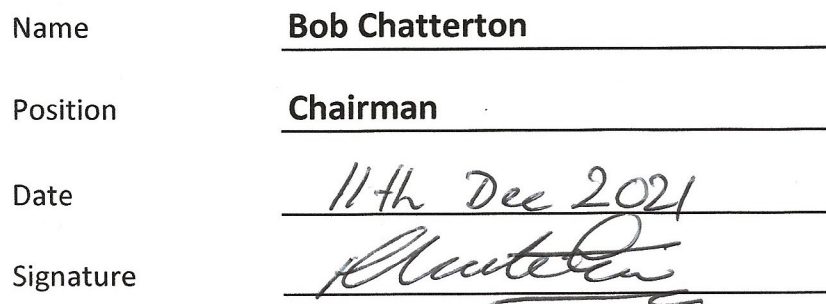 Name Bob Chatterton
Position Chairman
Date 11th Dec 2021
Signature